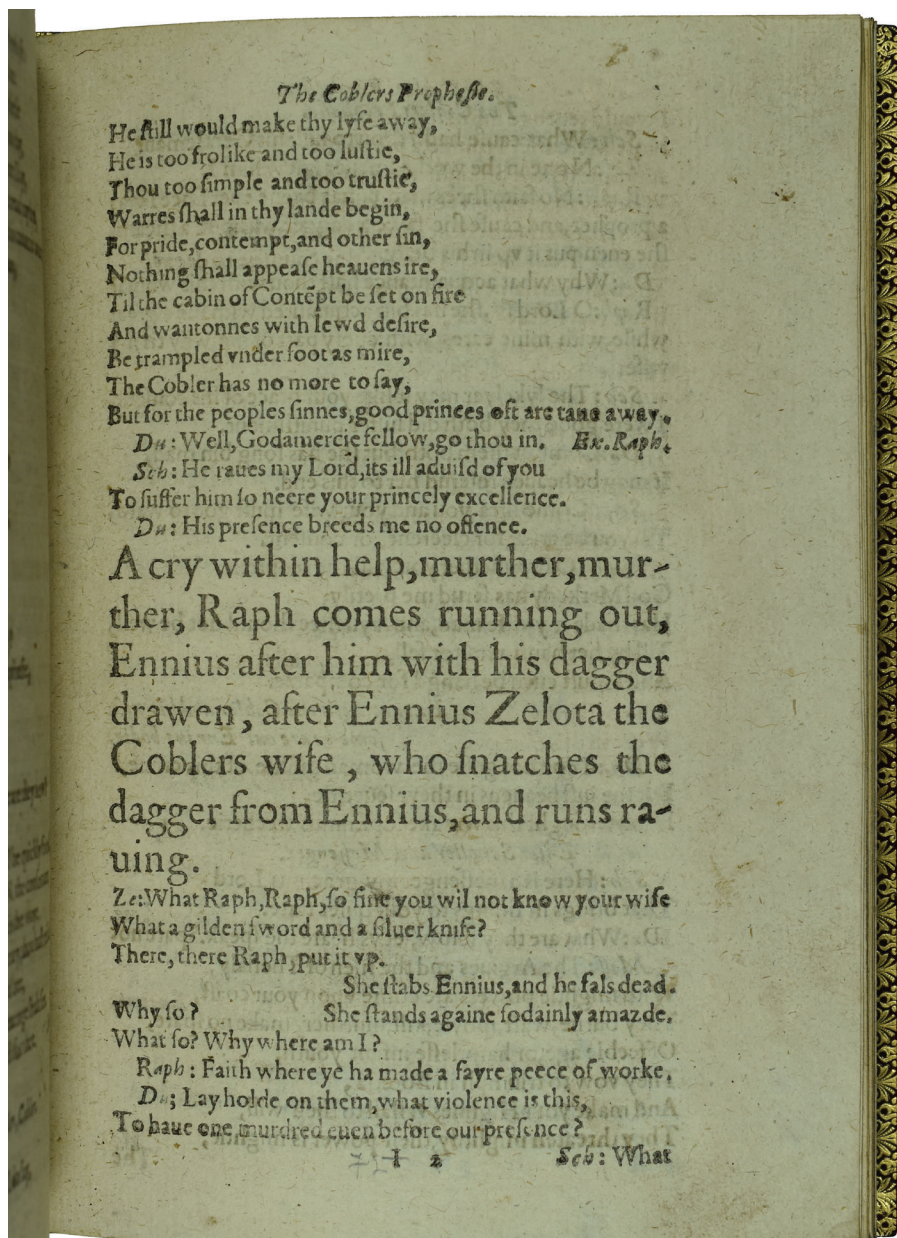 The Coblers Prophesie.
He ſtill would make thy lyfe away,
He is too frolike and too luſtie,
Thou too ſimple and too truſtie,
Warres ſhall in thy lande begin,
For pride,contempt,and other ſin,
Nothing ſhall appeaſe heauens ire,
Til the cabin of Contẽpt be ſet on fire
And wantonnes with lewd deſire,
Be trampled vnder foot as mire,
The Cobler has no more to ſay,
But for the peoples ſinnes,good princes oft are tane away.
Du: Well,Godamercie fellow,go thou in. Ex.Raph.
Sch: He raues my Lord,its ill aduiſd of you
To ſuffer him ſo neere your princely excellence.
Du: His preſence breeds me no offence.
A cry within help,murther,mur-
ther, Raph comes running out,
Ennius after him with his dagger
drawen, after Ennius Zelota the
Coblers wife , who ſnatches the
dagger from Ennius,and runs ra-
uing.
Ze:What Raph,Raph,ſo fine you wil not know your wife
What a gilden ſword and a ſiluer knife?
There, there Raph, put it vp.
She ſtabs Ennius,and he fals dead.
Why ſo? She ſtands againe ſodainly amazde.
What ſo? Why where am I?
Raph: Faith where ye ha made a fayre peece of worke.
Du; Lay holde on them,what violence is this,
To haue one murdred euen before our preſence?
I 2 Sch: What